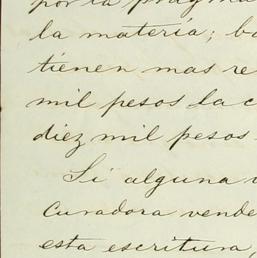 por la pragma
la materia; ba
tienen mas re
mil pesos la c
diez mil pesos
Si alguna v
curadora vende
esta escritura,